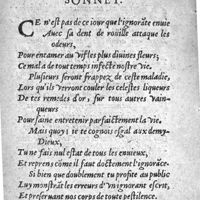 SONNET.
CE n'est pas de ce iour que l'ignorãte enuie
Auec sa dent de rouille attaque les
odeurs,
Pour entamer au vif les plus diuines fleurs;
Ce mal a de tout temps infecté nostre vie.
Plusieurs seront frappez de ceste maladie,
Lors qu'ils verront couler les celestes liqueurs
De tes remedes d'or, sur tous autres vain-
queurs
Pour saine entretenir parfaictement la vie.
Mais quoy? ie te cognois esgal aux demy-
Dieux,
Tu ne fais nul estat de tous les enuieux,
Et reprens cõme il faut doctement l'ignorãce.
Si bien que doublement tu profite au public
Luy monstrãt les erreurs d'vn ignorant escrit,
Et preseruant nos corps de toute pestilence.